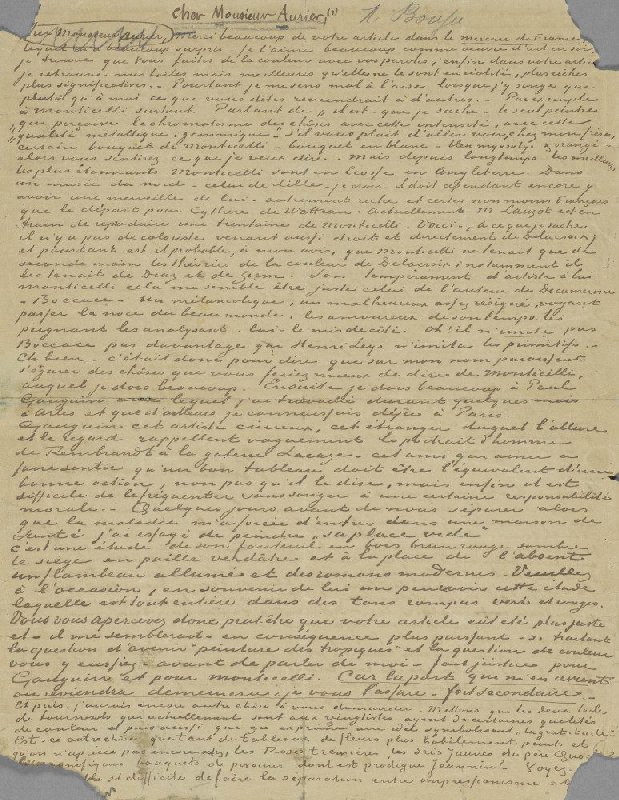 Cher Monsieur Aurier,
Cher Monsieur Aurier, merci beaucoup de votre article dans le mercure de France,
lequel m'a beaucoup surpris. je l'aime beaucoup comme œuvre d'art en soi,
je trouve que vous faites de la couleur avec vos paroles; enfin dans votre article
je retrouve mes toiles mais meilleures qu'elles ne le sont en réalité, plus riches
plus significatives. Pourtant je me sens mal à l'aise lorsque je songe que
plutôt qu'à moi ce que vous dites reviendrait à d'autres. Par exemple
à Monticelli surtout. Parlant de "il est que je sache le seul peintre
qui perçoive le chromatisme des choses avec cette intensité, avec cette
qualité métallique, gemmique" s'il vous plait d'aller voir chez mon frère
certain bouquet de Monticelli bouquet en blanc, bleu myosotys & orangé
alors vous sentirez ce que je veux dire. Mais depuis longtemps les meilleurs
les plus étonnants Monticelli sont en Ecosse, en Angleterre. Dans
un musée du nord celui de Lille je crois il doit cependant encore y
avoir une merveille de lui autrement riche et certes non moins français
que le départ pour Cythère de Watteau. Actuellement M Lauzet est en
train de reproduire une trentaine de Monticelli. Voici, à ce que je sache
il n'y a pas de coloriste venant aussi droit et directement de Delacroix;
et pourtant est il probable, à mon avis, que Monticelli ne tenait que de
seconde main les théories de la couleur de Delacroix; notamment il
les tenait de Diaz et de Ziem. Son tempérament d'artiste à lui
Monticelli cela me semble être juste celui de l'auteur du Decamerone
Boccace un mélancolique, un malheureux assez résigné, voyant
passer la noce du beau monde, les amoureux de son temps, les
peignant les analysant, lui le mis de côté. Oh! il n'imite pas
Boccace pas davantage que Henri Leys n'imita les primitifs.
Eh bien c'était donc pour dire que sur mon nom paraissent
s'égarer des choses que vous feriez mieux de dire de Monticelli,
auquel je dois beaucoup. Ensuite je dois beaucoup à Paul
Gauguin avec lequel j'ai travaillé durant quelques mois
à Arles et que d'ailleurs je connaissais déjà à Paris
Gauguin, cet artiste curieux, cet étranger duquel l'allure
et le regard rappellent vaguement le portrait d'homme
de Rembrandt à la galerie Lacaze cet ami qui aime à
faire sentir qu'un bon tableau doit être l'équivalent d'une
bonne action, non pas qu'il le dise, mais enfin il est
difficile de le fréquenter sans songer à une certaine responsabilité
morale. Quelques jours avant de nous séparer alors
que la maladie m'a forcé d'entrer dans une maison de
santé j'ai essayé de peindre "sa place vide"
C'est une étude de son fauteuil en bois brun rouge sombre
le siège en paille verdâtre et à la place de l'absent
un flambeau allumé et des romans modernes. Veuillez
à l'occasion, en souvenir de lui un peu revoir cette étude
laquelle est toute entière dans des tons rompus verts et rouges.
Vous vous apercevrez donc peut être que votre article eût été plus juste
et il me semblerait en conséquence plus puissant si traitant
la question d'avenir "peinture des tropiques" et la question de couleur
vous y eussiez avant de parler de moi fait justice pour
Gauguin et pour Monticelli. Car la part qui m'en revient
ou reviendra demeurera, je vous l'assure fort secondaire.
Et puis j'aurais encore autre chose à vous demander. Mettons que les deux toiles
de tournesols qui actuellement sont aux vingtistes ayent de certaines qualités
de couleur
Est
et si difficile de faire la séparation entre impressionisme et